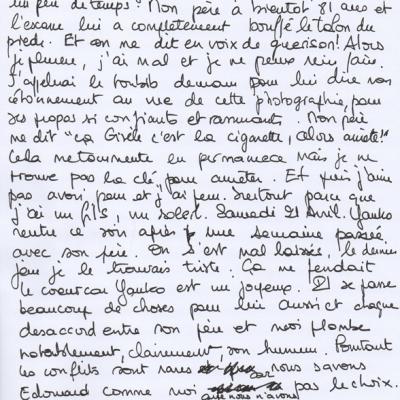 un peu de temps. Mon père a bientôt 81 ans et
l'escarre lui a complètement bouffé le talon du
pied. Et on me dit en voix de guérison! Alors
je pleure, j'ai mal et je ne peux rien faire.
J'appelerai le toubib demain pour lui dire nos
étonnement au vue de cette photographie, pour
ses propos si confiants et rassurants. Mon père
me dit "ça Gisèle c'est la cigarette, alors arrête!"
Cela me tourmente en permanence mais je ne
trouve pas la clé, pour arrêter. Et puis j'aime
pas avoir peur et j'ai peur. Surtout parce que
j'ai un fils, un soleil. Samedi 21 Avril. Yanko
rentre ce soir après une semaine passée
avec son père. On s'est mal laissés, le dernier
jour je le trouvais triste. Ça me fendait
le coeur car Yanko est un joyeux. Il se passe
beaucoup de choses pour lui aussi et chaque
désaccord entre son père et moi plombe
notablement, clairement, son humeur. Pourtant
les conflits sont rares car nous savons
Edouard comme moi que nous n'avons pas le choix.